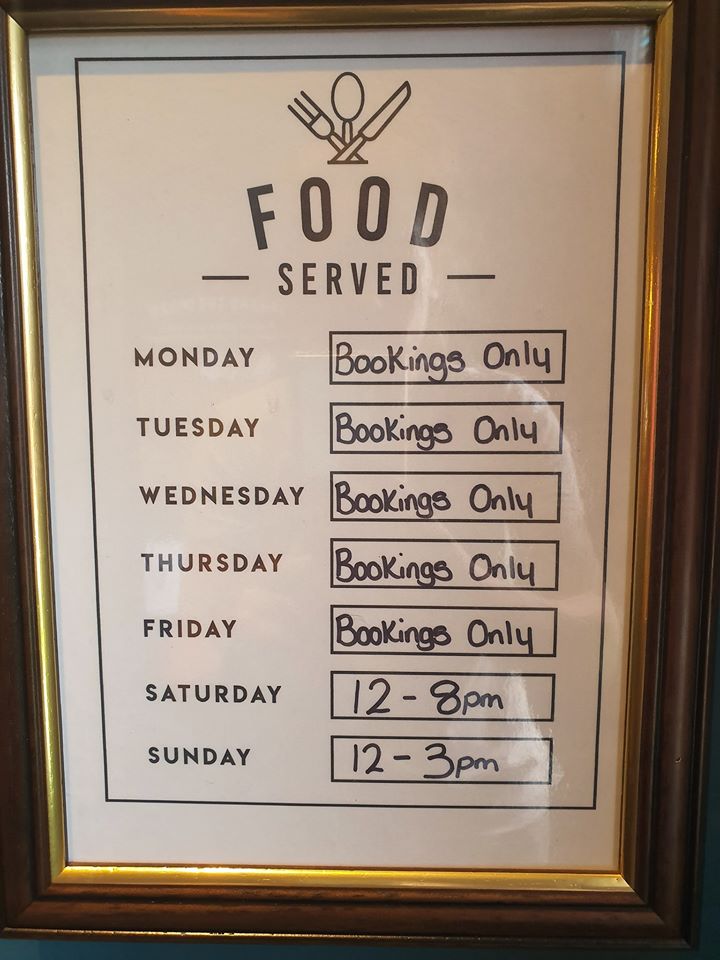 FOOD
SERVED
MONDAY Bookings Only
TUESDAY Bookings Only
WEDNESDAY Bookings Only
THURSDAY Bookings Only
FRIDAY Bookings Only
SATURDAY 12 - 8pm
SUNDAY 12 - 3pm